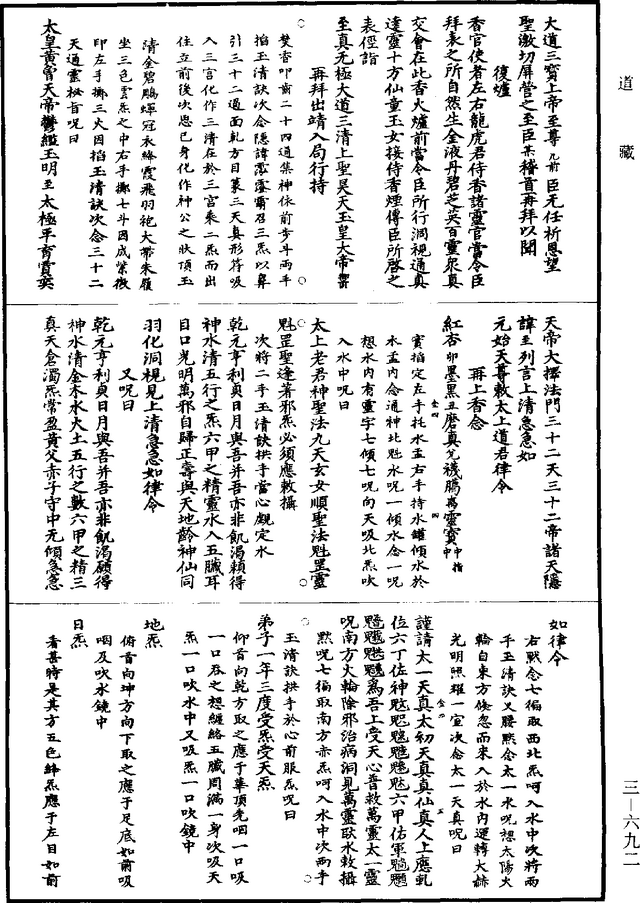 道藏
大道三寶上帝至尊几前臣无任祈恩望
聖激切屏營之至臣某稽首再拜以聞
復爐
香官使者左右龍虎君侍香諸靈官當令臣
拜表之所自然生金液丹碧芝英百靈衆真
交會在此香火爐前當令臣所行洞視通真
達靈十方仙童玉女接侍香煙傳臣所啓之
表徑詣
至真无極大道三清上聖昊天玉皇大帝御
再拜出靖入局行持
焚香叩齒二十四通集神依前步斗兩手
掐玉清訣次念隱諱召三炁以鼻
引三十二過面乾方目幕三天真形符吸
入三宮化作三清在於三宮乘二炁而出
住立前後次思已身化作神公之狀頂玉
清金碧鵰蟬冠衣絳霞飛羽袍大帶朱履
坐三色雲炁之中右手擲七斗因成紫微
印左手擲三火因掐玉清訣次念三十二
天通靈秘旨呪曰
太皇黃曾天帝鬱繿玉明至太極平育賈奕
天帝大擇法門三十二天三十二帝諸天隱
諱至列言上清急急如
元始天尊敕太上道君律令
再上香念
紅杏卯墨黑丑磨真戈襪腸萬靈寶中指中
實掐定左手托水盂右手持水罐傾水於
水盂內念通神北魁水呪一傾水念一呪
想水內有靈字七傾七呪向天吸北炁吹
入水中呪曰
太上老君神聖法九天玄女順聖法魁罡靈
魁罡聖逢著邪炁必須應敕攝
次將二手玉清訣拱手當心覷定水
乾元亨利貞日月與吾并吾亦非飢渴賴得
神水清五行之炁六甲之精靈水入五臟耳
目口光明萬邪自歸正壽與天地齡神仙同
羽化洞視見上清急急如律令
又呪曰
乾元亨利貞日月與吾并吾亦非飢渴願得
神水清金木水火土五行之數六甲之精三
真天倉濁炁常盈黃父赤子守中无傾急急
如律令
右默念七徧取西北炁呵入水中次將兩
手玉清訣叉腰默念太一水呪想太陽火
輪自東方倏忽而來入於水內運轉大赫
光明照耀一室次念太一天真呪曰
謹請太一天真太幼天真真仙真人上應軋
位六丁佐神六甲佑軍
爲吾上受天心普救萬靈太一靈
呪南方火輪除邪治病洞見萬靈臥水敕攝
默呪七徧取南方赤炁呵入水中次兩手
玉清訣拱手於心前服炁呪曰
弟子一年三度受炁受天炁
仰首向乾方取之應于華頂先咽一口吸
一口吞之想纏絡五臟周滿一身次吸天
炁一口吹水中又吸炁一口吹鏡中
地炁
俯首向坤方向下取之應于足底如前吸
咽及吹水鏡中
日炁
看甚時是其方五色絳炁應于左目如前
三—六九二